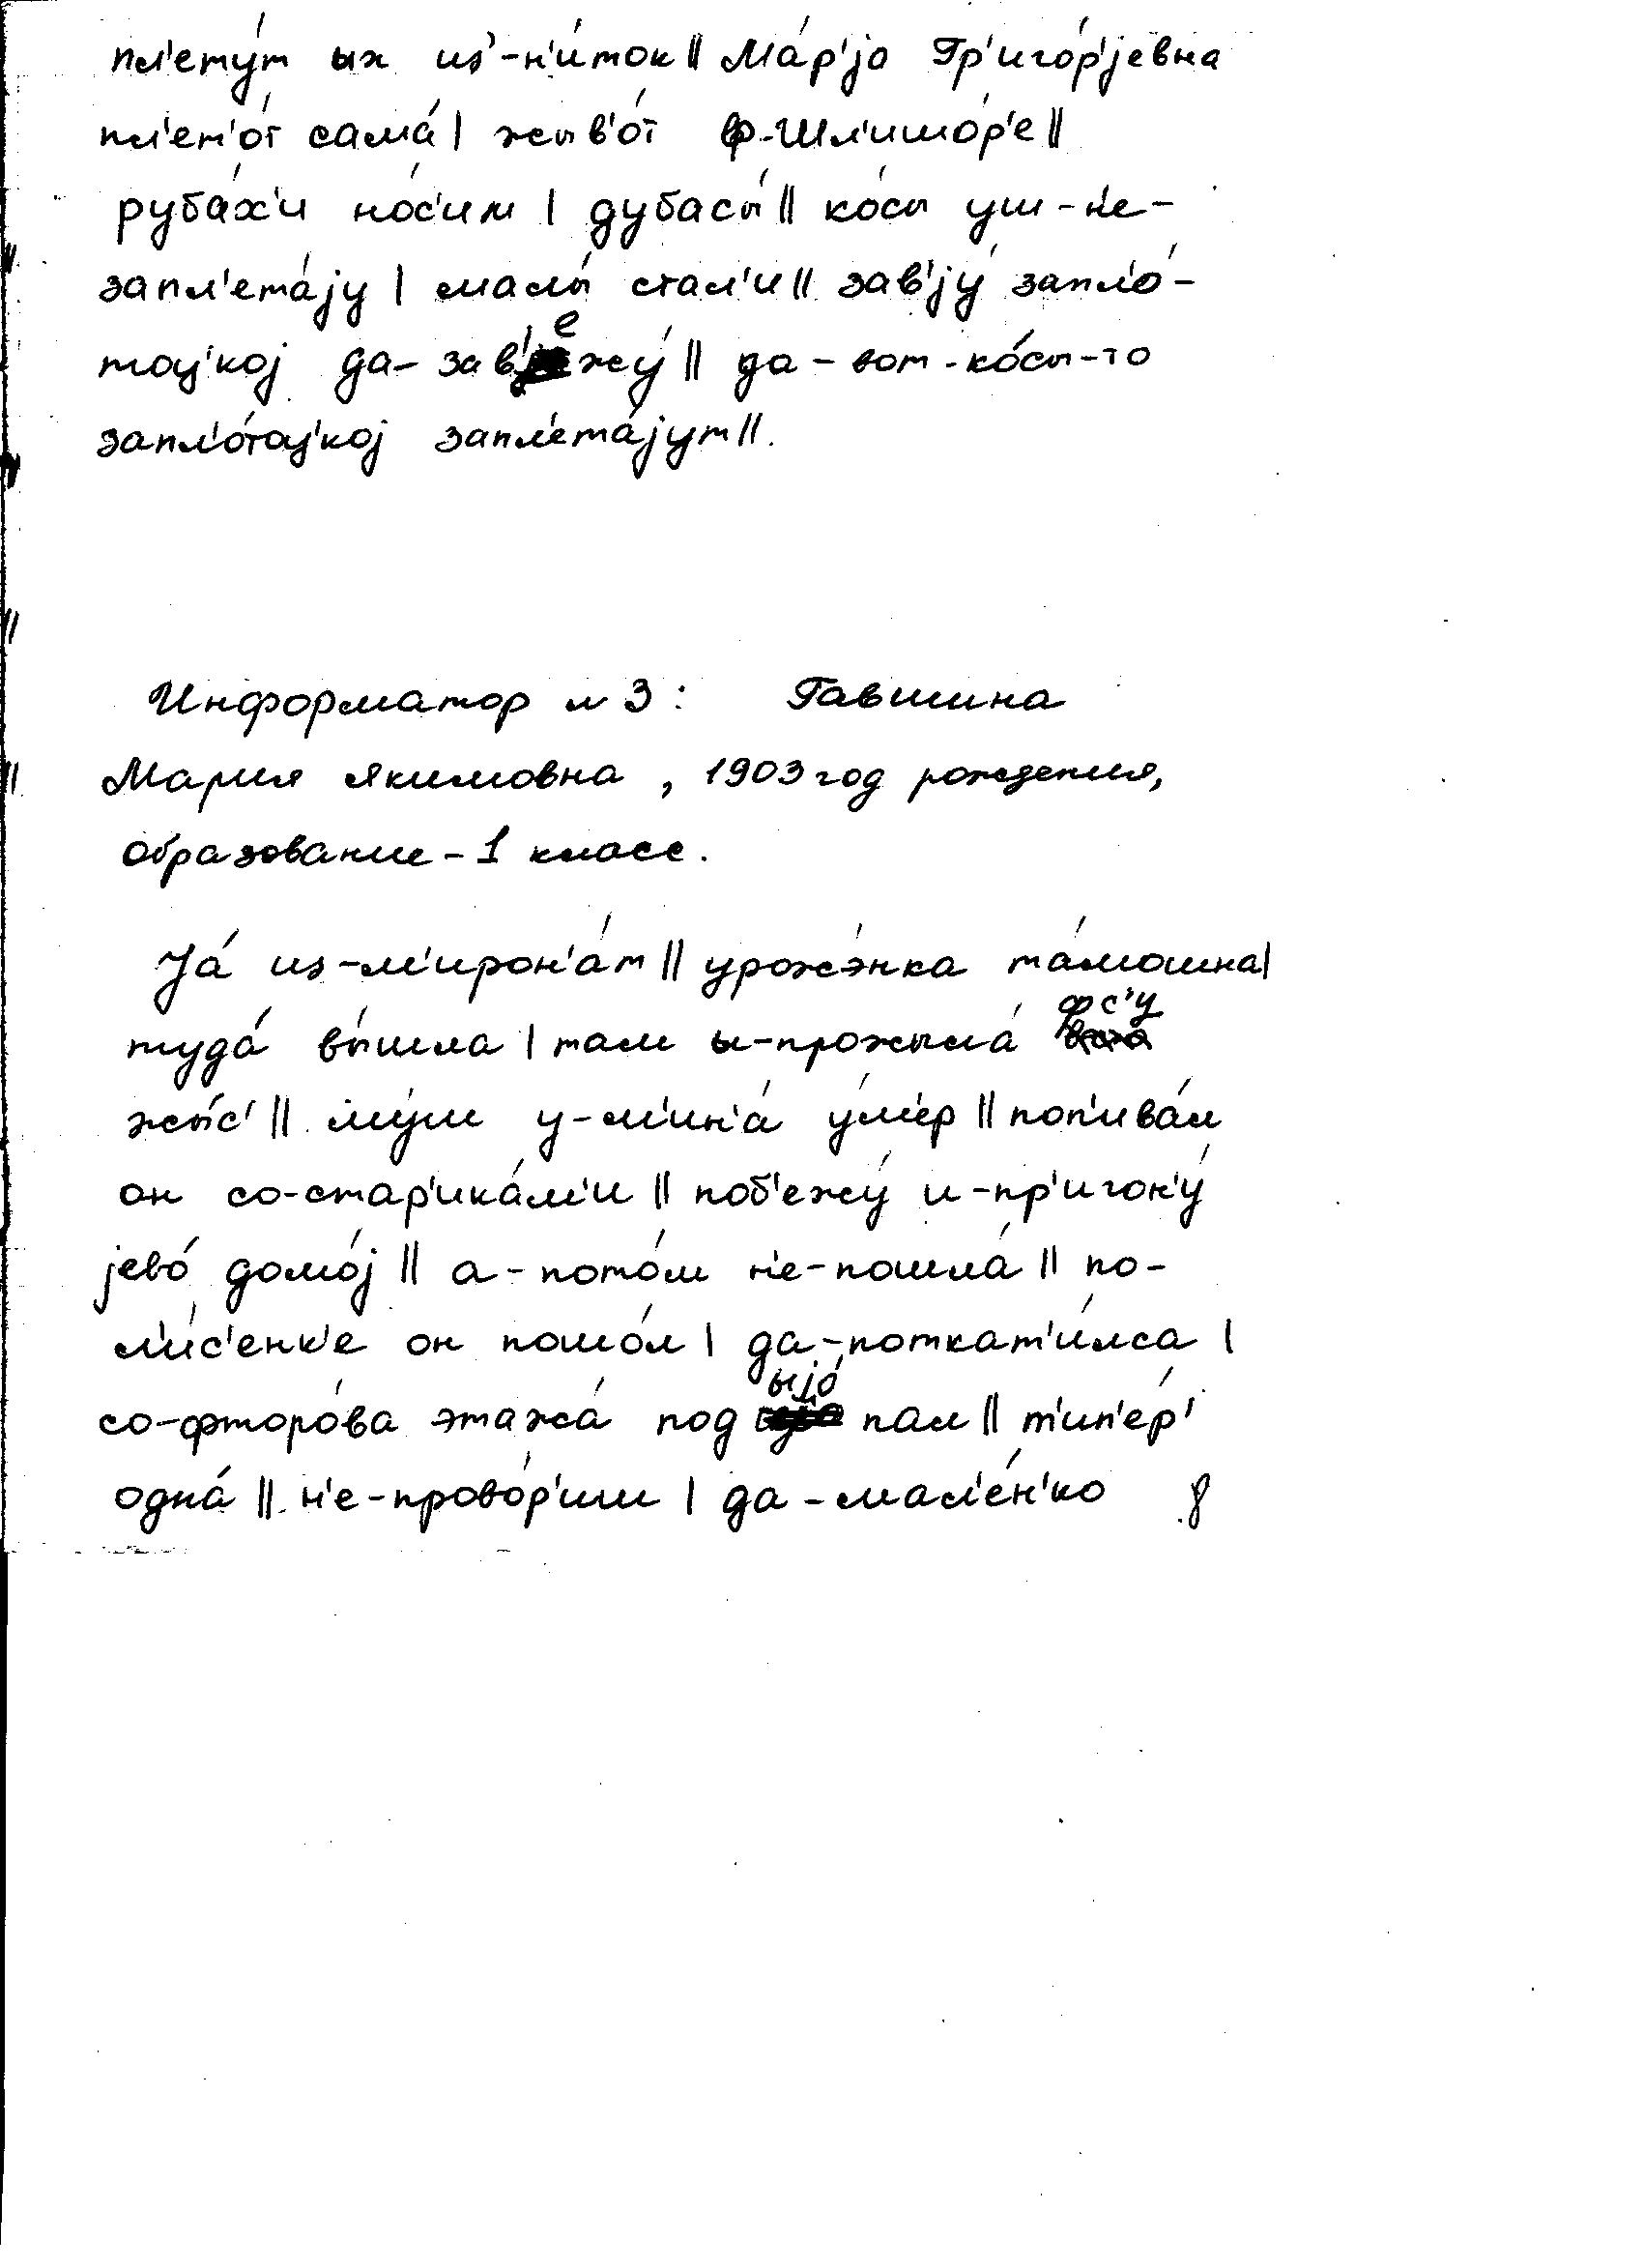 пл'ету́т ых из'-н'и́ток || Ма́р'jа Гр'иго́р'jевна
пл'ет'о́т сама́ | жыв'о́т ф-Шл'ишо́р'е ||
руба́х'и но́с'им | дубасы́ || ко́сы уш-н'е-
запл'ета́jу | малы́ стал'и || зав'jу́ запл'о́-
тоц'коj да-зав'ежу́ || да-вот-ко́сы-то
запл'о́тоц'коj запл'ета́jут ||.
Информатор № 3: Гавшина
Мария Якимовна, 1903 год рождения,
образование - 1 класс.
Jа́ из-м'ирон'а́т || урожэ́нка та́мошна |
туда́ вы́шла | там ы-прожыла́ фс'у
жы́с' || му́ш у-м'ин'а́ у́м'ер || поп'ива́л
он со-стар'ика́м'и || поб'ежу́ и-пр'игон'у́
jево́ домо́j || а-пото́м н'е-пошла́ || по-
л'и́с'енк'е он пошо́л | да-поткат'и́лса |
со-фторо́ва этажа́ под ыjо́ пал || т'ип'е́р'
одна́ || н'е-прово́р'иш | да-мал'е́н'ко 8